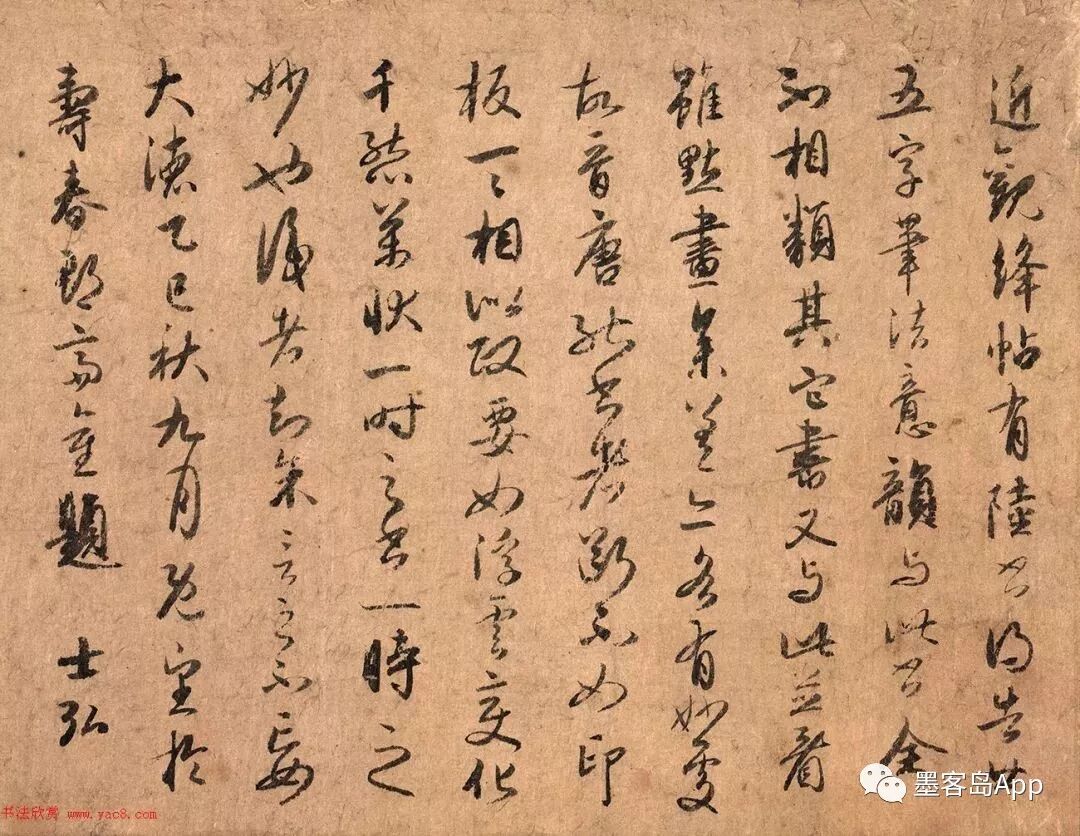 近觀絳帖有陸公得告廿
五字筆法意韻与此書全
不相類其它書又与此並看
雖點畫亦各有妙處
故晉唐能書者斷不如印
板一一相似政要如浮雲變化
千態萬狀一時之書一時之
妙也後者知余言之不妄
大德乙巳秋九月既望於
壽春郡齋重題 士弘
墨客岛App
书法欣赏 www.yac8.com